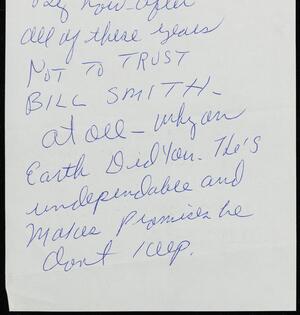 now - after
all of these years
NOT TO TRUST
BILL SMITH -
at all - why on
Earth Did You. He's
undependable and
Makes Promises he
dont keep.